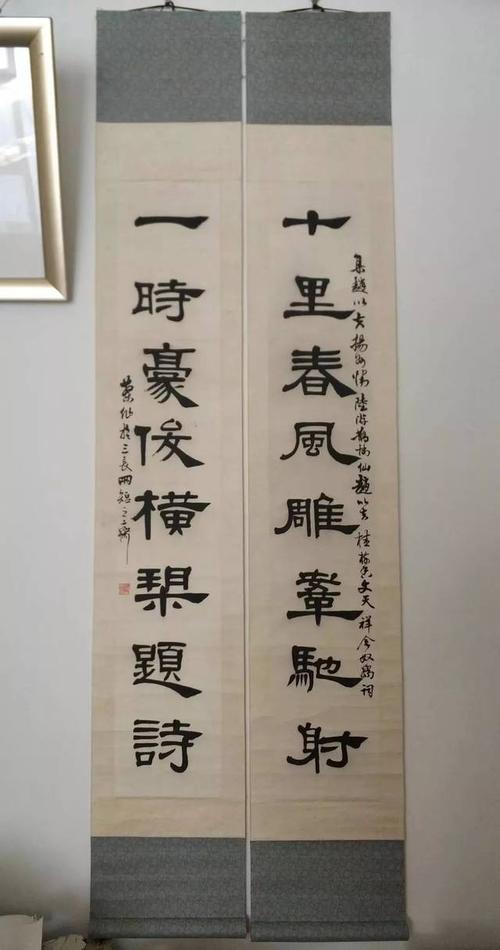 十里春風雕鞌馳射
集趙以夫揚州慢陸游鵲橋仙趙以夫桂枝香文天祥念奴嬌詞
一時豪俊橫槊題詩
仙於三長兩短之齋